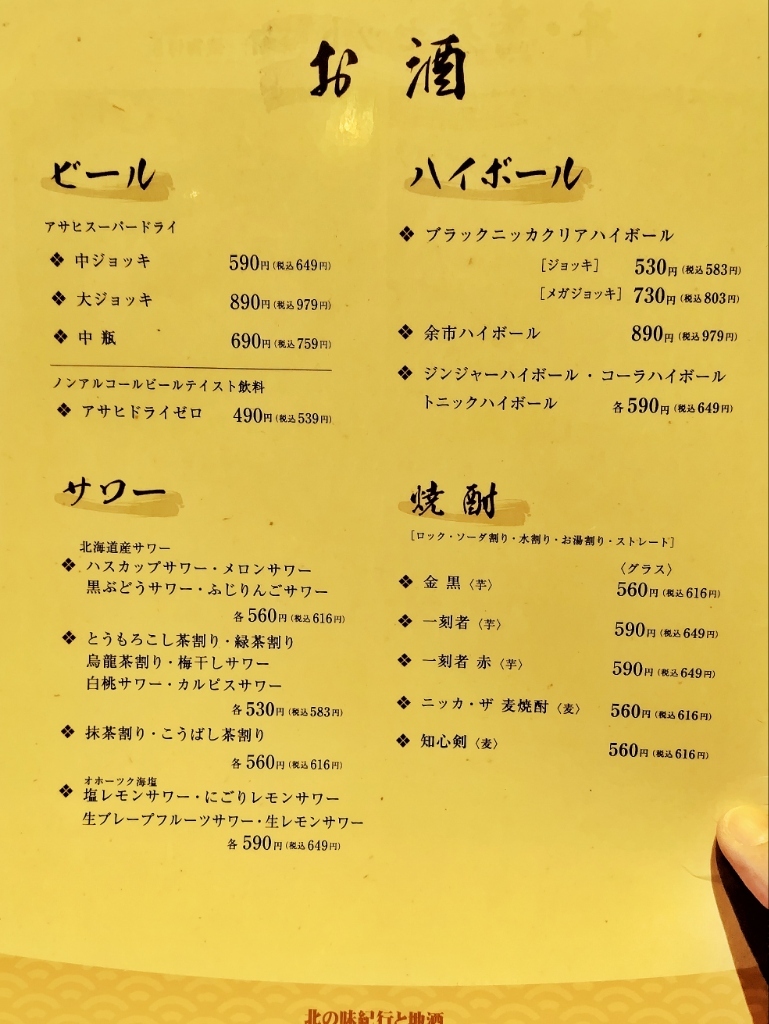 お酒
ビール
アサヒスーパードライ
❖ 中ジョッキ 590円(税込649円)
❖ 大ジョッキ 890円(税込979円)
❖ 中瓶 690円(税込759円)
ノンアルコールビールテイスト飲料
❖ アサヒドライゼロ 490円(税込539円)
サワー
北海道産サワー
❖ ハスカップサワー・メロンサワー
黒ぶどうサワー・ふじりんごサワー
各560円(税込616円)
❖ とうもろこし茶割り・緑茶割り
烏龍茶割り・梅干しサワー
白桃サワー・カルピスサワー
各530円(税込583円)
❖ 抹茶割り・こうばし茶割り
各560円(税込616円)
オホーツク海塩
❖ 塩レモンサワー・にごりレモンサワー
生ブレープフルーツサワー・生レモンサワー
各590円(税込649円)
ハイボール
❖ ブラックニッカクリアハイボール
[ジョッキ] 530円(税込583円)
[メガジョッキ] 730円(税込803円)
❖ 余市ハイボール 890円(税込979円)
❖ ジンジャーハイボール・コーラハイボール
トニックハイボール 各590円(税込649円)
焼酎
[ロック・ソーダ割り・水割り・お湯割り・ストレート]
〈グラス〉
❖ 金黒〈芋〉 560円(税込616円)
❖ 一刻者〈芋〉 590円(税込649円)
❖ 一刻者 赤〈芋〉 590円(税込649円)
❖ ニッカ・ザ 麦焼酎〈麦〉 560円(税込616円)
❖ 知心剣〈麦〉 560円(税込616円)
北の味紀行と地酒